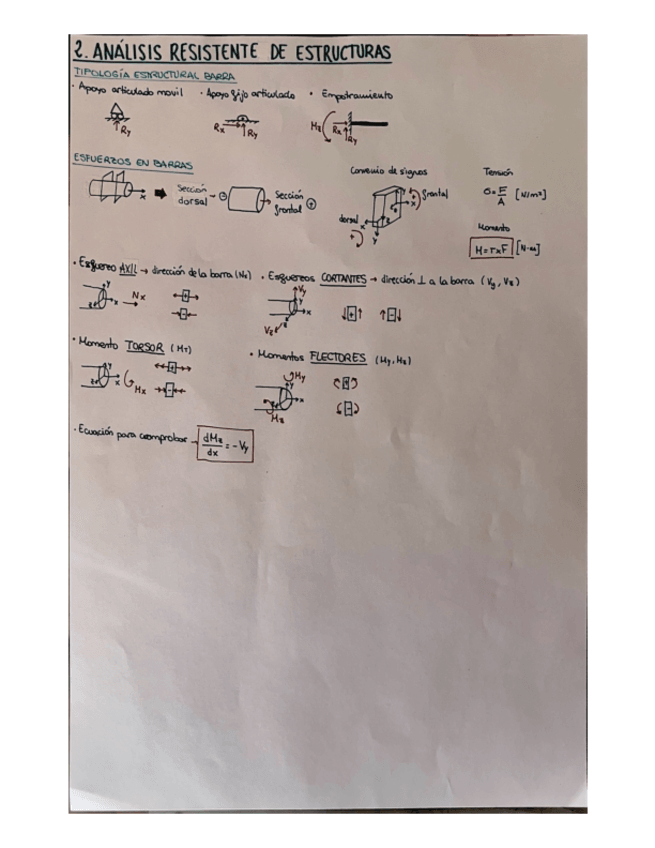 2. ANÁLISIS RESISTENTE DE ESTRUCTURAS
TIPOLOGÍA ESTRUCTURAL BARRA
· Apoyo articulado movil · Apoyo fijo articulado • Empotramiento
Ry
Rx Ry
Mz Rx Ry
ESFUERZOS EN BARRAS
x
Sección dorsal
Sección frontal
Convenio de signos
frontal
dorsal
x
y
Tensión
σ = F/A [N/m²]
Momento
M = r x F [N·m]
· Esfuerzo AXIL → dirección de la barra (Nx) · Esfuerzos CORTANTES → dirección ⊥ a la barra (Vy, Vz)
y z x Nx + -
Vy x Vz + -
· Momento TORSOR (MT) · Momentos FLECTORES (My, Mz)
y z x Mx + -
My y x Mz + -
· Ecuación para comprobar → dMz/dx = -Vy